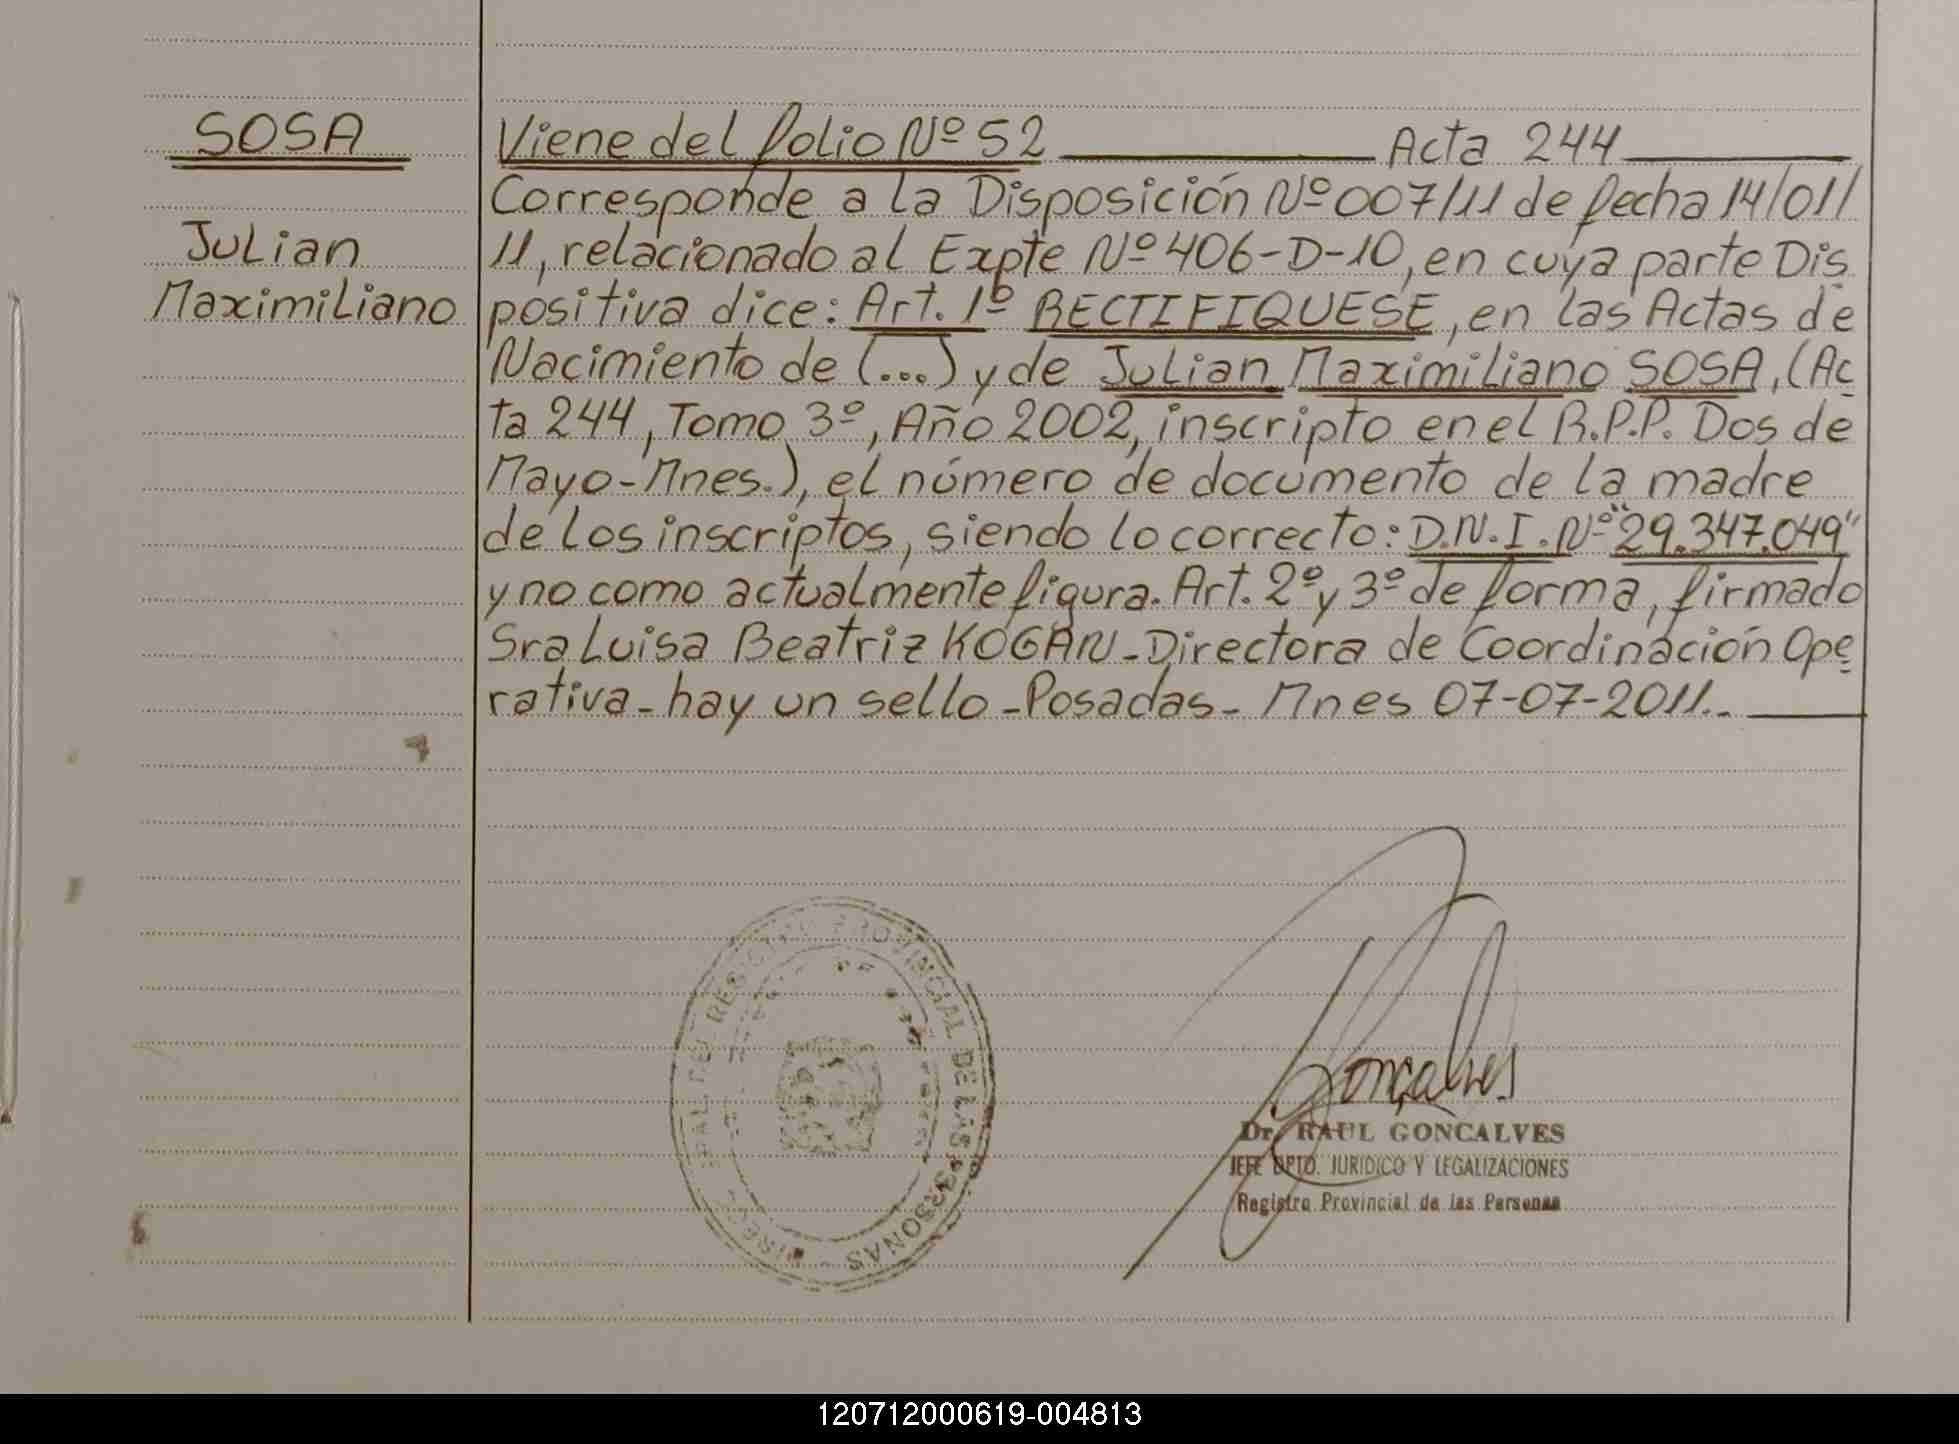 SOSA
Julian
Maximiliano
Viene del folio Nº 52 Acta 244
Corresponde a la Disposición Nº 007/11 de fecha 14/01/
11, relacionado al Expte Nº 406-D-10, en cuya parte Dis
positiva dice: Art. 1º RECTIFIQUESE, en las Actas de
Nacimiento de (...) y de Julian Maximiliano SOSA, (Ac
ta 244, Tomo 3º, Año 2002, inscripto en el R.P.P. Dos de
Mayo-Mnes.), el número de documento de la madre
de los inscriptos, siendo lo correcto: D.N.I. Nº "29.347.049"
y no como actualmente figura. Art. 2º y 3º de forma, firmado
Sra Luisa Beatriz KOGAN - Directora de Coordinación Ope
rativa - hay un sello - Posadas - Mnes 07-07-2011.-
REGISTRO PROVINCIAL DE LAS PERSONAS
Gonçalves
Dr. RAUL GONCALVES
JEFE DPTO. JURIDICO Y LEGALIZACIONES
Registro Provincial de las Personas
120712000619-004813